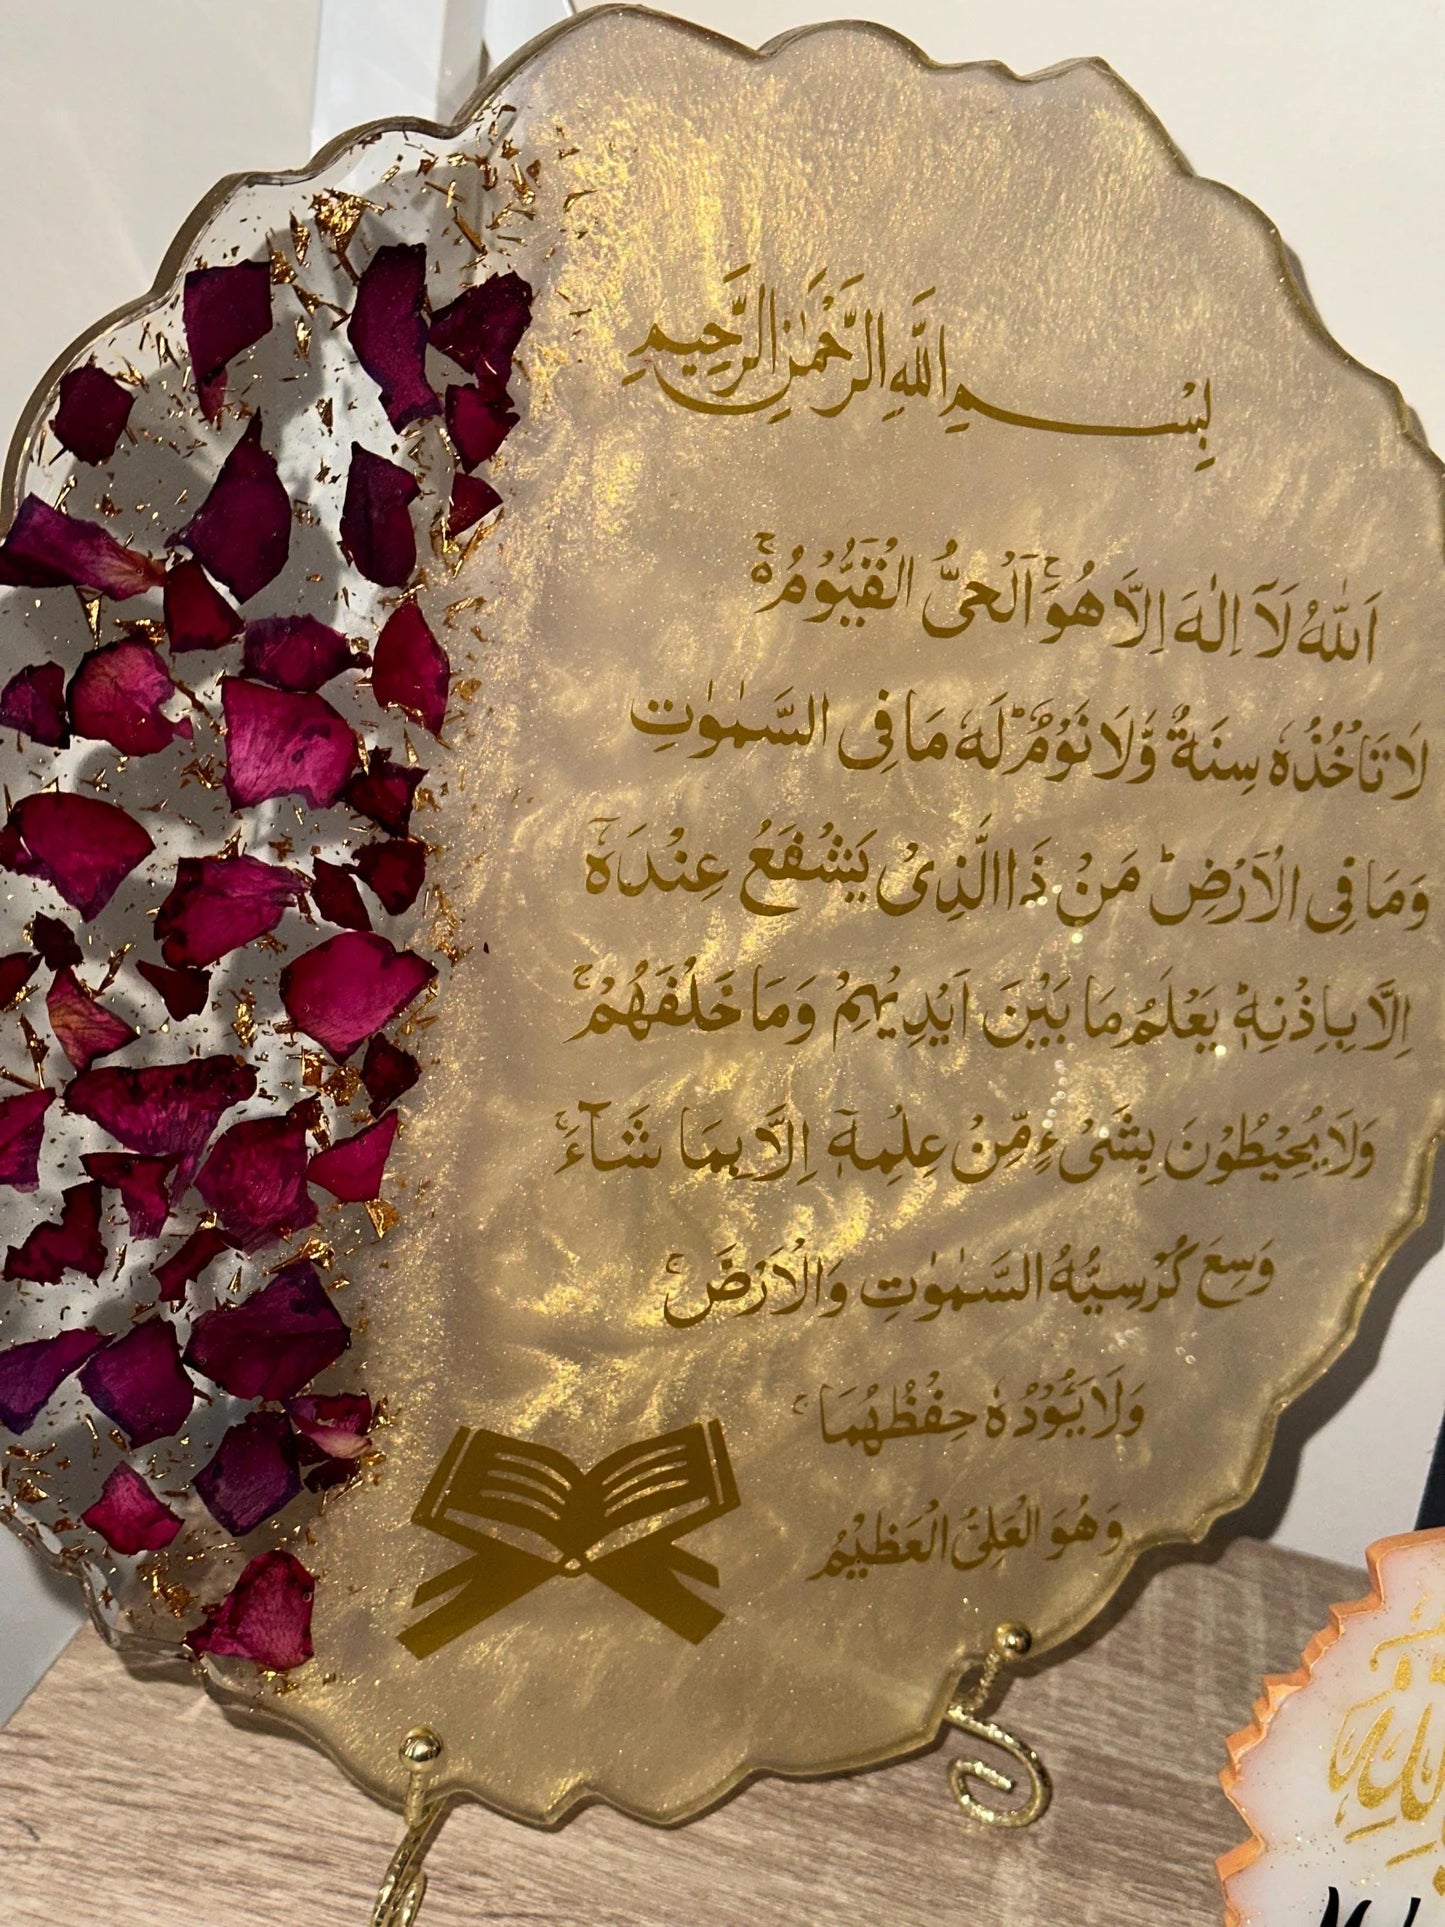 بِسْمِ اللَّهِ الرَّحْمَٰنِ الرَّحِيمِ
اَللّٰهُ لَآ اِلٰهَ اِلَّا هُوَ ۚ اَلْحَیُّ الْقَیُّوْمُ ۚ۬
لَا تَاْخُذُهٗ سِنَةٌ وَّلَا نَوْمٌ ؕ لَهٗ مَا فِی السَّمٰوٰتِ
وَمَا فِی الْاَرْضِ ؕ مَنْ ذَا الَّذِیْ یَشْفَعُ عِنْدَهٗۤ
اِلَّا بِاِذْنِهٖ ؕ یَعْلَمُ مَا بَیْنَ اَیْدِیْهِمْ وَمَا خَلْفَهُمْ ۚ
وَلَا یُحِیْطُوْنَ بِشَیْءٍ مِّنْ عِلْمِهٖۤ اِلَّا بِمَا شَآءَ ۚ
وَسِعَ كُرْسِیُّهُ السَّمٰوٰتِ وَالْاَرْضَ ۚ
وَلَا یَـُٔوْدُهٗ حِفْظُهُمَا ۚ
وَهُوَ الْعَلِیُّ الْعَظِیْمُ